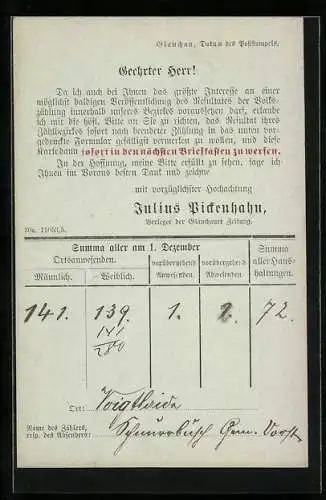 Glauchau, Datum des Poststempels.
Geehrter Herr!
Da ich auch bei Ihnen das größte Interesse an einer
möglichst baldigen Veröffentlichung des Resultates der Volks-
zählung innerhalb unseres Bezirkes voraussetzen darf, erlaube
ich mir die höfl. Bitte an Sie zu richten, das Resultat ihres
Zählbezirkes sofort nach beendeter Zählung in das unten vor-
gedruckte Formular gefälligst vermerken zu wollen, und diese
Kartedann sofort in den nächsten Briefkasten zu werfen.
In der Hoffnung, meine Bitte erfüllt zu sehen, sage ich
Ihnen im Voraus besten Dank und zeichne
mit vorzüglichster Hochachtung
Julius Pickenhahn,
Verleger der Glauchauer Zeitung.
Summa aller am 1. Dezember
Ortsanwesenden.
vorübergehend Abwesenden
vorübergehend Anwesenden
Summa aller Haus-
haltungen.
Männlich.
Weiblich.
141. 139. 1. 1. 72.
141
280
Ort: Voigtlaide
Name des Zählers,
resp. des Absenders: Schnurrbusch Gem. Vorst